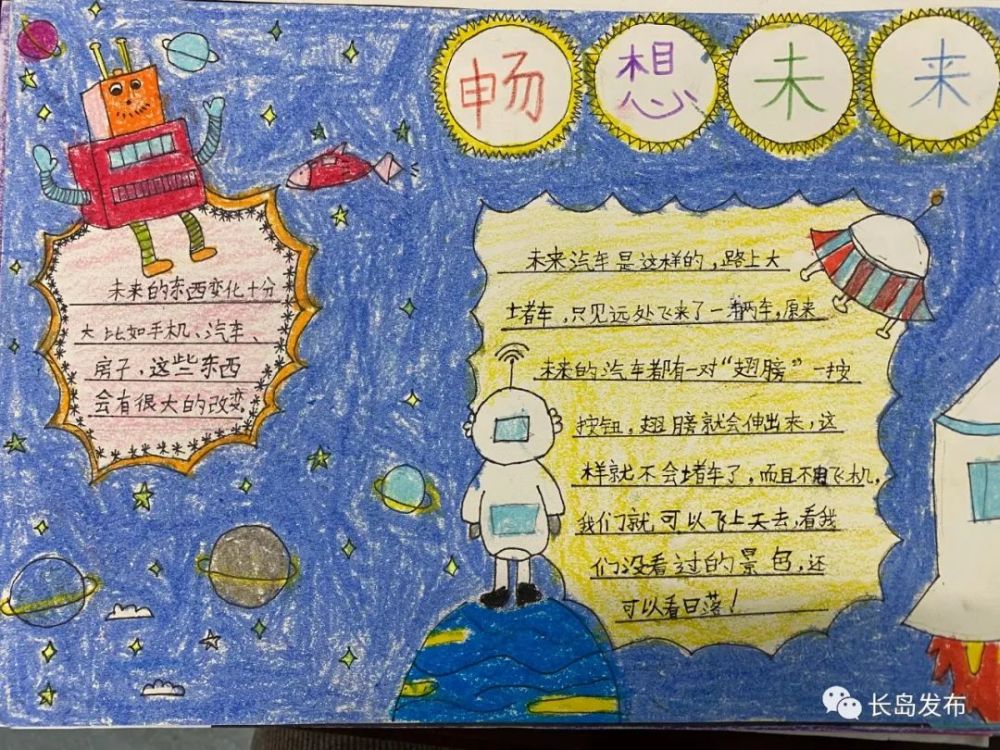 畅想未来
未来的东西变化十分
大比如手机、汽车、
房子，这些东西
会有很大的改变。
未来汽车是这样的，路上大
堵车，只见远处飞来了一辆车，原来
未来的汽车都有一对“翅膀”一按
按钮，翅膀就会伸出来，这
样就不会堵车了，而且不用飞机，
我们就可以飞上天去，看我
们没看过的景色，还
可以看日落！
长岛发布